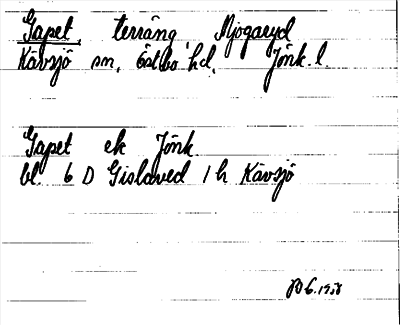 Gapet, terräng Mjogaryd
Kävsjö sn. Östbo hd. Jönk. l.
Gapet ek Jönk
bl. 6 D Gislaved 1 h Kävsjö